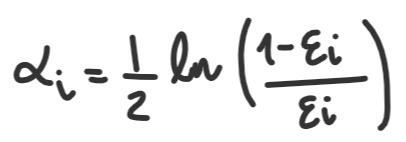 αᵢ = 1/2 ln((1-εi)/εi)